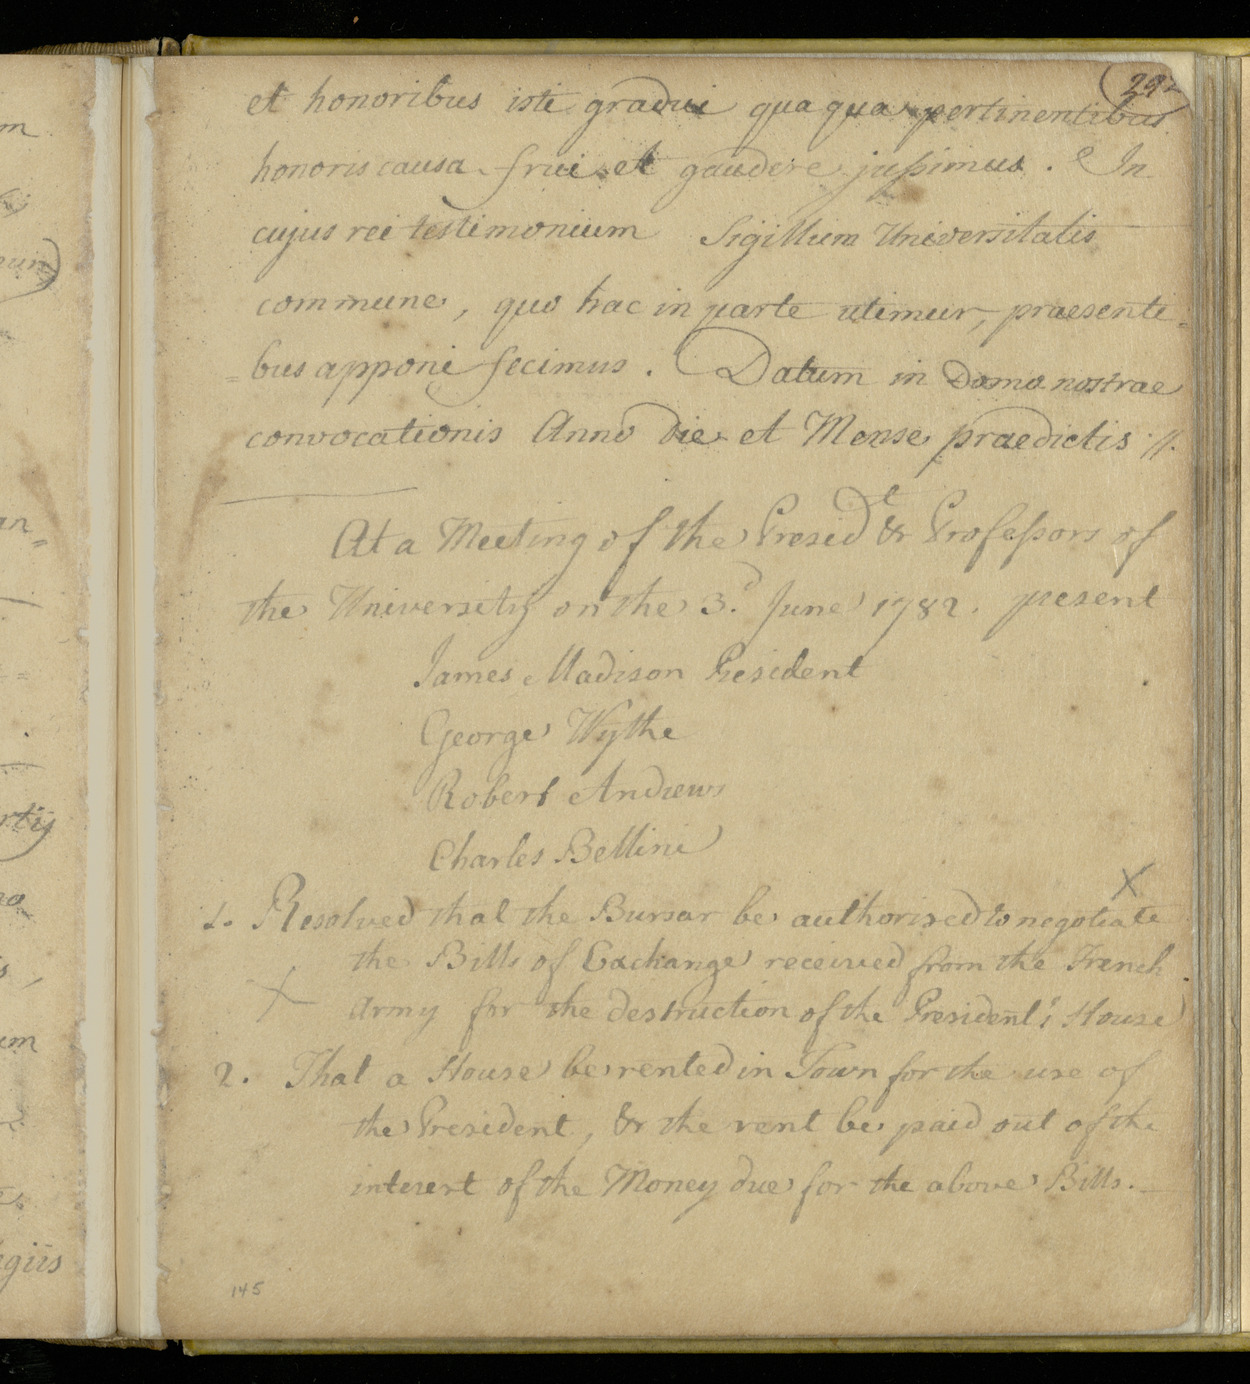 292
et honoribus isti gradui quaqua pertinentibus
honoris causa frui et gaudere jussimus. In
cujus rei testimonium Sigillum Universitatis
commune, quo hac in parte utimur, praesenti-
=bus apponi fecimus. Datum in Domo nostrae
convocationis Anno Die et Mense praedictis //.
At a Meeting of the Presidt & Professors of
the University on the 3.d June 1782. present
James Madison President
George Wythe
Robert Andrews
Charles Bellini
X
1. Resolved that the Bursar be authorized to negotiate
the Bills of Exchange received from the French
X Army for the destruction of the President's House
2. That a House be rented in Town for the use of
the President, & the rent be paid out of the
interest of the Money due for the above Bills.
145